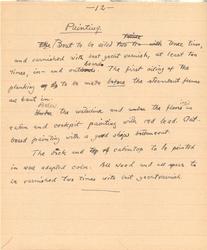 —12—
Painting.
The Boat to be oiled two to with three times,
and varnished with best great varnish, at least two
times, in and outboard. The first oiling of the
planking to be made before the steambent frames
are bent in.
Under the waterline and under the floors in
cabin and cockpit painting with red lead. Out-
board painting with a good ships bottomcoat.
The Deck and top of cabintop to be painted
in one adapted color. All wood and all spars to
be varnished two times with best great varnish.